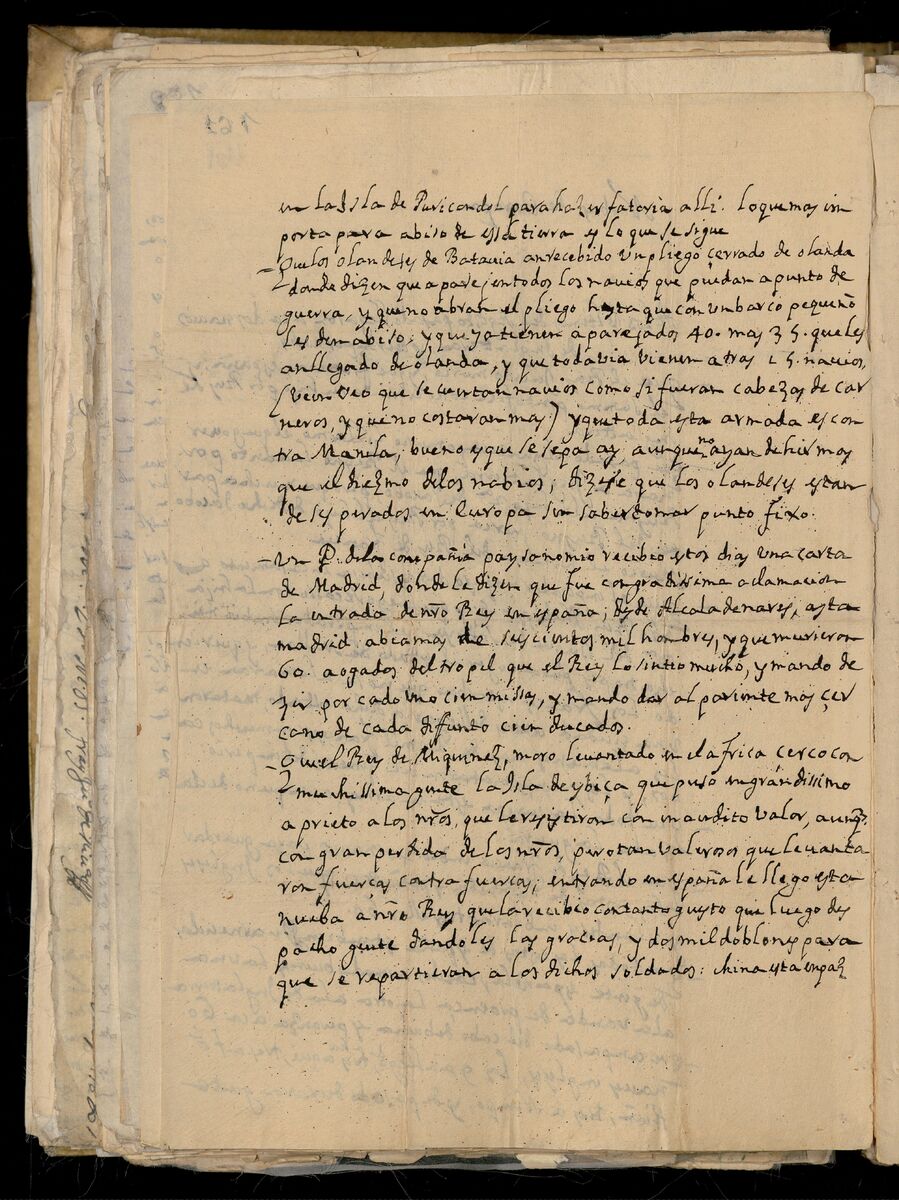 161
en la Isla de Puricondol para hazer fatoria alli. lo que mas im
porta para abiso de essa tierra es lo que se sigue
– Que los olandeses de Batauia an recebido un pliego cerrado de olanda
donde dizen que aparejen todos los nauios que puedan a punto de
guerra, y que no abran el pliego hasta que con un barco pequeño
les den abiso; y que ya tienen aparejados 40. mas 35. que les
an llegado de olanda, y que todauia vienen atras 15. nauios,
que se cuentan nauios como si fueran cabezas de car
neros, y que no costaran mas) y que toda esta armada es con
tra Manila, bueno es que se sepa ay, aunque no ayan de hir mas
que el diezmo de los nabios; dizese que los olandeses estan
desesperados en Europa sin saber tomar punto fixo.
– Un P. de la compañia paysano mio recibio estos dias una carta
de Madrid, donde le dizen que fue con gradissima aclamacion
la entrada de nro Rey en españa; desde Alcala de nares, asta
madrid abia mas de seiscientos mil hombres, y que murieron
60. aogados del tropel que el Rey lo sintio mucho, y mando de
zir por cada uno cien missas, y mando dar al pariente mas çer
cano de cada difunto cien ducados.
– Que el Rey de Miquinez, moro leuantado en el africa cerco con
muchissima gente la Isla de ybiça que puso en grandissimo
aprieto a los nros, que le resistiron con inaudito valor, aunq.
con gran perdida de los nros, pero tan valerosos que leuanta
ron fuercas contra fuercas; entrando en españa le llego esta
nueba a nro Rey que la recibio con tanto gusto que luego des
pacho gente dandoles las gracias, y dos mil doblones para
que se repartieran a los dichos soldados: china esta en paz